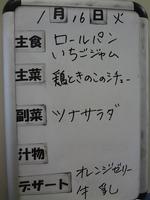 1月16日火
主食 ロールパン
いちごジャム
主菜 鶏ときのこのシチュー
副菜 ツナサラダ
汁物
デザート オレンジゼリー
牛乳